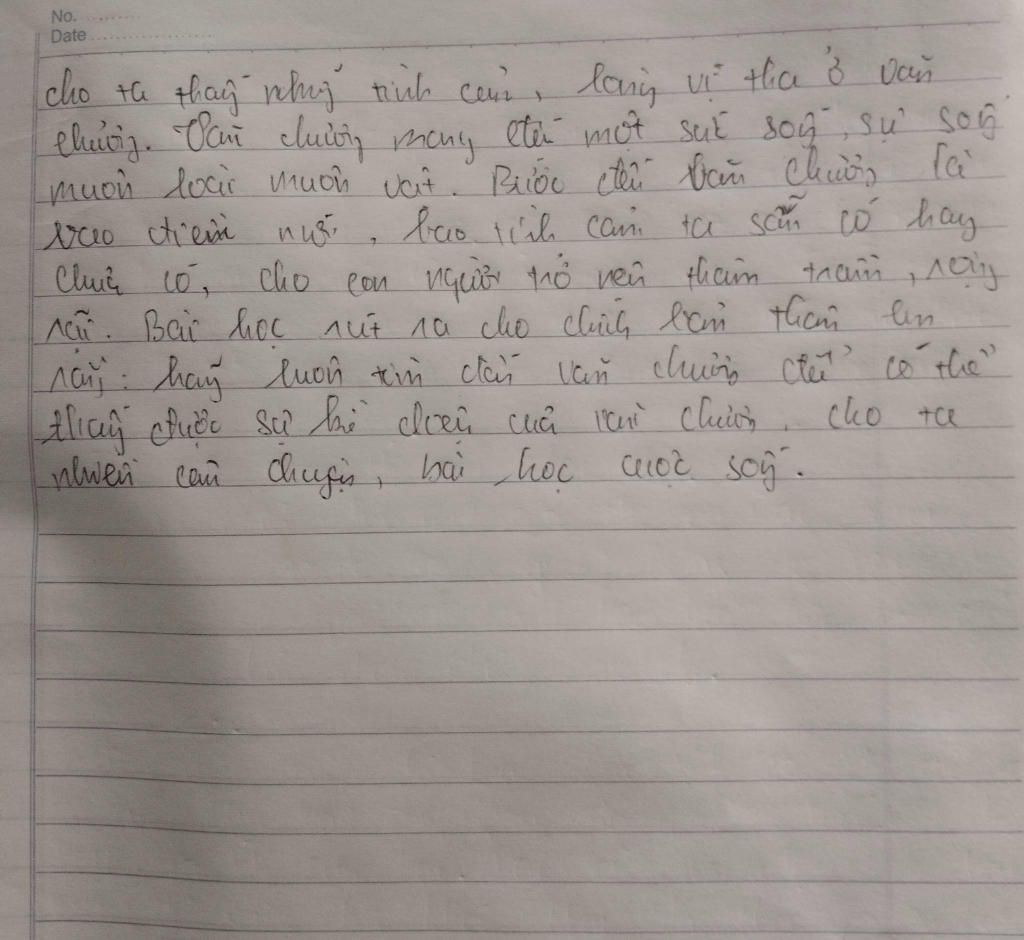 No. ............
Date ....................
cho ta thấy những tình cảm, lòng vị tha ở văn
chương. Văn chương mang đến một sức sống, sự sống
muôn loài muôn vật. Bước đến văn chương là
bao điểm nữa, bao tình cảm ta sẵn có hay
chưa có, cho con người trở nên thâm trầm, rộng
rãi. Bài học rút ra cho chính bản thân em
rằng: hãy luôn tìm đến văn chương để có thể
thấy được sự của văn chương, cho ta
nhiều câu chuyện, bài học cuộc sống.